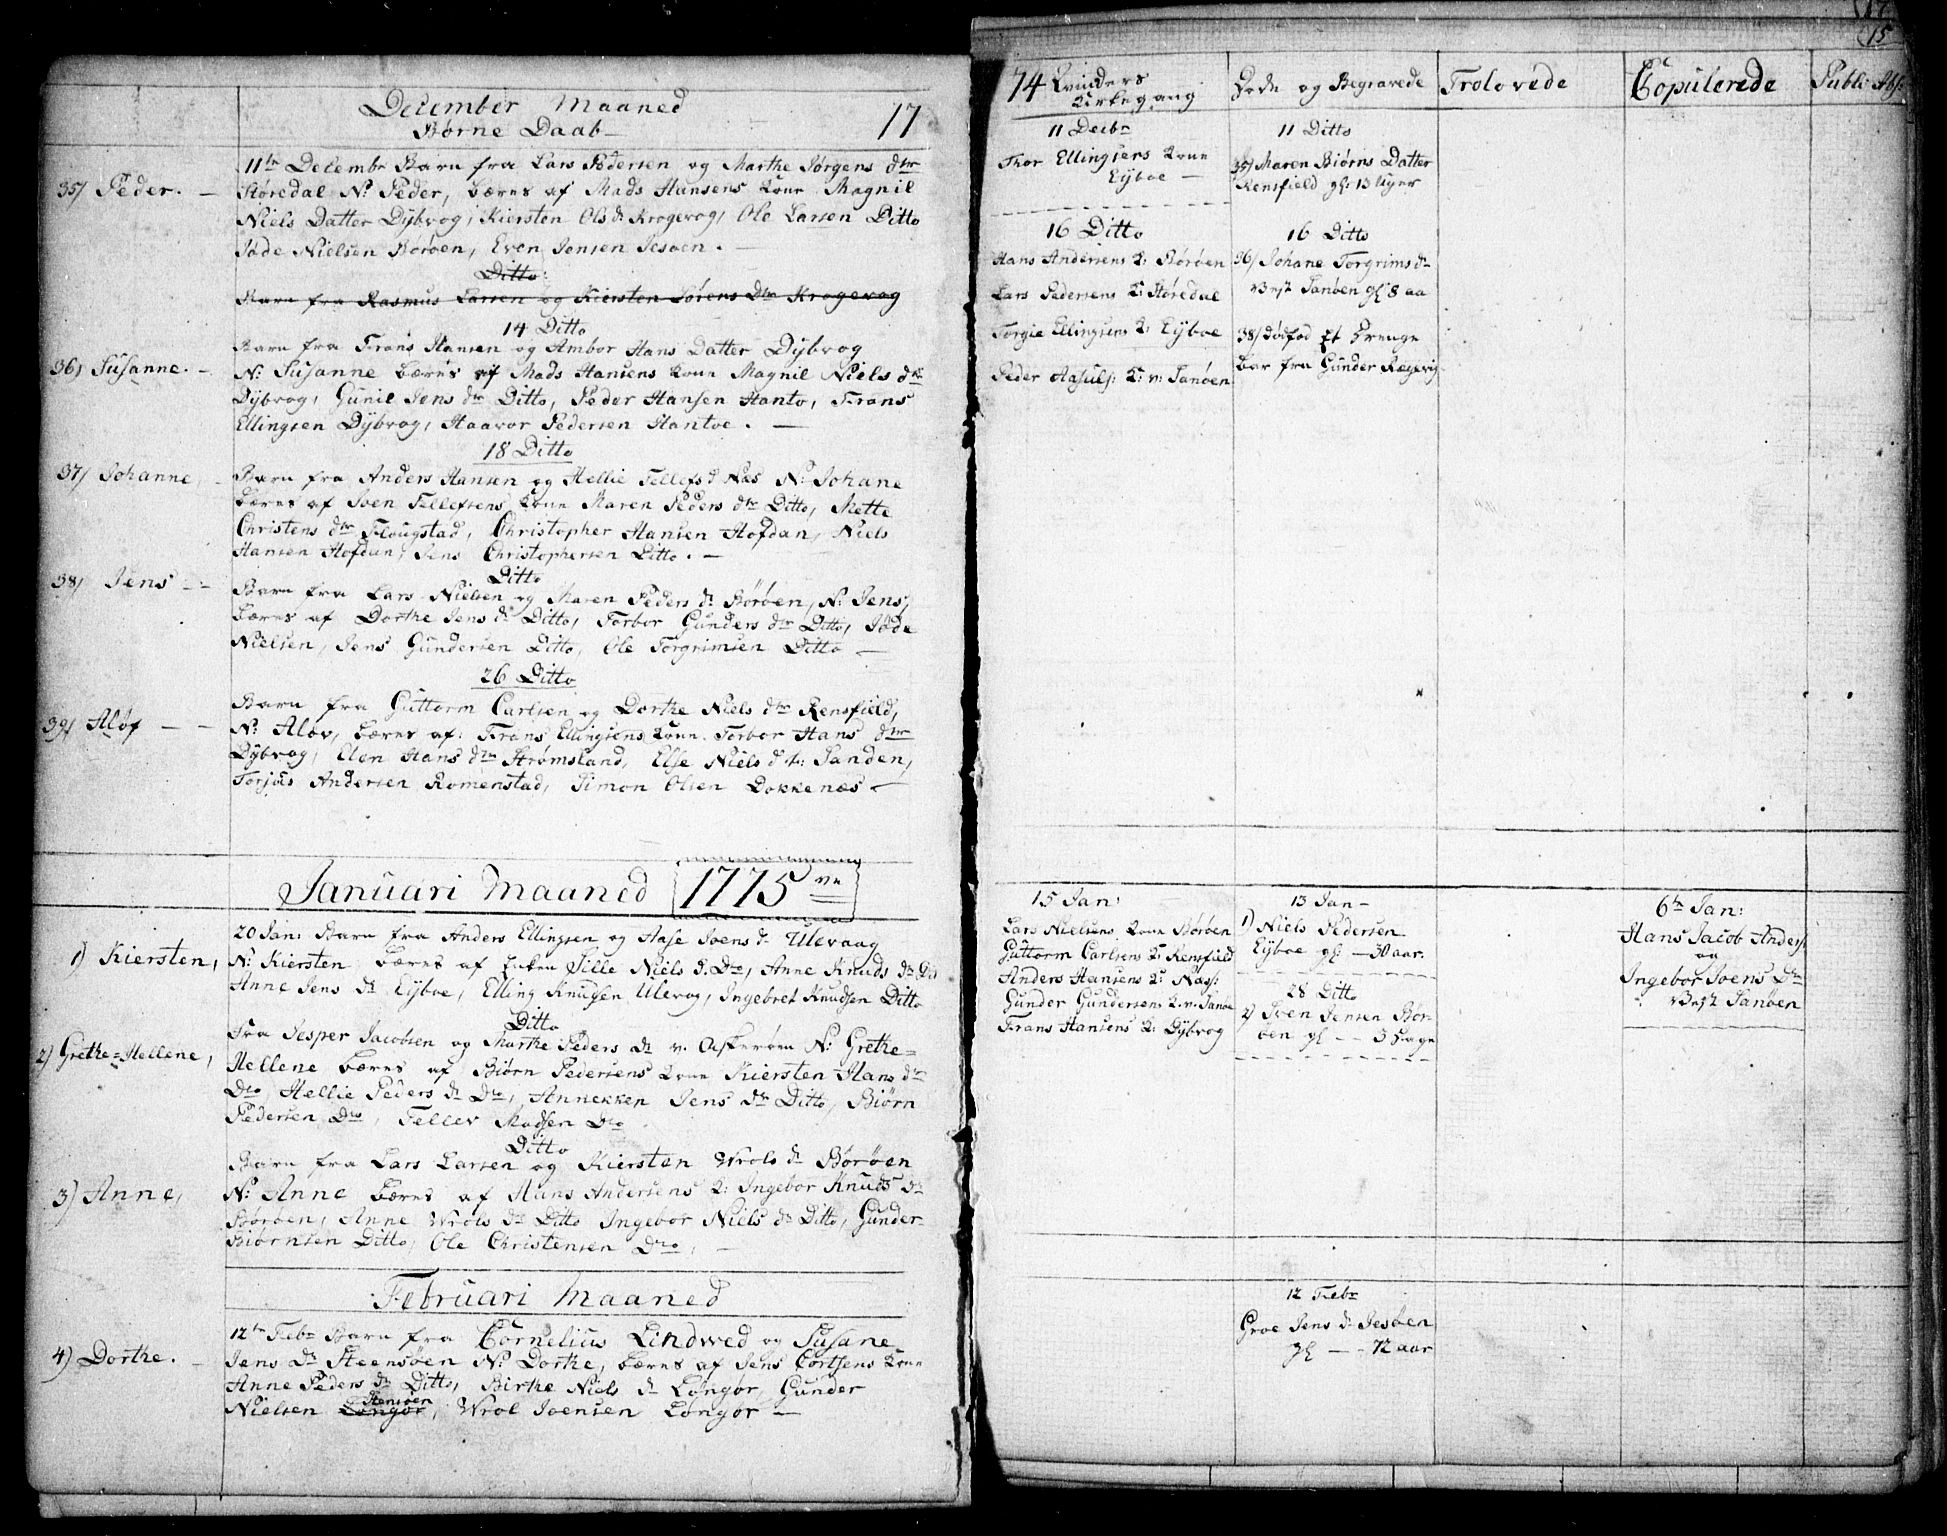 December Maaned 17
Børne Daab
35) Peder. —
11te Decembr Barn fra Lars Pedersen og Marthe Jørgens dtr
Støredal N: Peder, bæres af Mads Hansens Kone Magnil
Niels Datter Dÿbvog, Kiersten Ols d: Krogevog, Ole Larsen Ditto
Jøde Nielsen Børøen, Even Jensen Jesøen. —
Ditto:
Barn fra Rasmus Larsen og Kiersten Sørens Dtr Krogevog
14 Ditto
Barn fra Frans Hansen og Ambor Hans Datter Dÿbvog
36) Susanne. —
N: Susanne bæres af Mads Hansens Kone Magnil Niels dtr
Dÿbvog, Gunil Jens dtr Ditto, Peder Hansen Hanto, Frans
Ellingsen Dÿbvog, Haavor Pedersen Hantoe. —
18 Ditto
37) Johanne, —
Barn fra Anders Hansen og Hellie Tellefs d Næs N: Johane
bæres af Soen Tellefsens Kone Maren Peders dtr Ditto, Mette
Christens dtr Flougstad, Christopher Hansen Hofdan, Niels
Hansen Hofdan, Jens Christophersen Ditto. —
Ditto
38) Jens — —
Barn fra Lars Nielsen og Maren Peders d: Børøen, N: Jens,
bæres af Dorthe Jens d: Ditto, Torbor Gunders dtr Ditto, Jøde
Nielsen, Jens Gundersen Ditto, Ole Torgrimsen Ditto —
26 Ditto
Barn fra Guttorm Carlsen og Dorthe Niels dtr Rensfield,
39) Aløf — —
N: Aløv, bæres af: Frans Ellingsens Kone Torbor Hans dtr
Dÿbvog, Elen Hans dtr Strømsland, Else Niels dtr: Sanden,
Torjus Andersen Romenstad, Simon Olsen Dokkenæs —
Januari Maaned 1775 ve
20 Jan: Barn fra Anders Ellingsen og Aase Soens d: Ulevaag
1) Kiersten,
N: Kiersten bæres af Enken Sille Niels d: Dto, Anne Knuds dtr Do
Anne Jens dr Eÿboe, Elling Knudsen Ulevog, Ingebret Knudsen Ditto
Ditto
Fra Jesper Jacobsen og Marthe Peders dr v: Askerøen N: Grethe=
2) Grethe=Hellene,
Hellene bæres af Biørn Pedersens Kone Kiersten Hans dtr
Dto, Hellie Peders dr Dto, Annekken Jens dtr Ditto, Biørn
Pedersen Dto, Tellev Madsen Dto
Ditto
Barn fra Lars Larsen og Kiersten Wrols dr Børøen
3) Anne,
N: Anne bæres af Hans Andersens K: Ingebor Knuds dr
Børøen, Anne Wrols dr Ditto Ingebor Niels dr Ditto, Gunder
Biørnsen Ditto, Ole Christensen Dto, —
Februari Maaned
12te Febr Barn fra Cornelius Lindwed og Susane
4) Dorthe. —
Jens Dr Steensøen N: Dorthe, bæres af Jens Cortsens Kone
Anne Peders dr Ditto, Birthe Niels dr Longør, Gunder
Stensøen
Nielsen Longør, Wrol Soensen Longør —
17
15
74 Kvinders
Kirkegang
Døde og Begravede
Trolovede
Copulerede
Publ: Abs:
11 Decbr
Thor Ellingsens Kone
Eÿboe —
16 Ditto
Hans Andersens K: Børøen
Lars Pedersens K: Støredal
Torgie Ellingsens K: Eÿboe
Peder Aasuls: K: v: Sanøen
11 Ditto
35) Maren Biørns Datter
Rensfield gl: 13 Uger
16 Ditto
36) Johane Torgrims dr
Vest Sanøen gl 8 aa
38) dødfød Et Drenge
bar fra Gunder Rægevig
15 Jan:
Lars Nielsens Kone Børøen
Guttorm Carlsens K: Rensfield
Anders Hansens K: Næs:
Gunder Gundersens K: v: Sanøe
Frans Hansens K: Dÿbvog
13 Jan —
1) Niels Pedersen
Eÿboe gl: — 30 aar.
28 Ditto
2) Sven Jensen Bør-
øen gl — — 3 Dage
6te Jan:
Hans Jacob Anders:
og
Ingebor Soens Dtr
Vest Sanøen
12 Febr
Groe Jens dr Jesøen
gl — — 72 aar